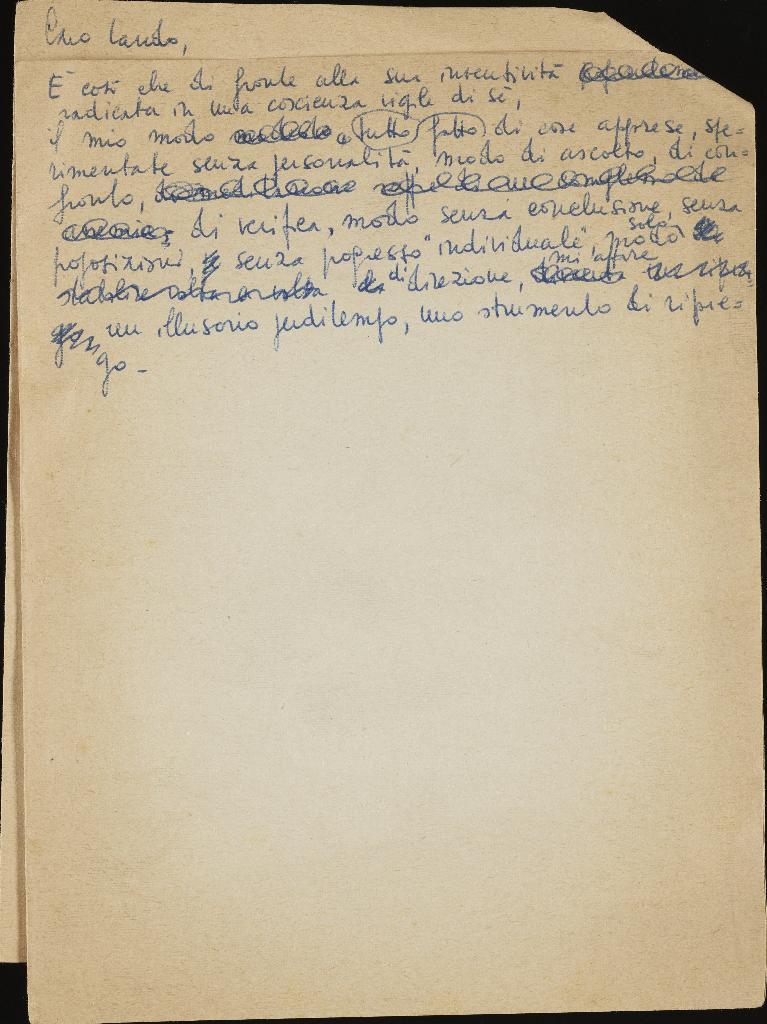 Caro Lando,
È così che di fronte alla sua inventività
radicata in una coscienza vigile di sé,
il mio modo tutto fatto di cose apprese, spe=
rimentate senza personalità, modo di ascolto, di con=
fronto,
di verifica, modo senza conclusione, senza
proposizioni, senza progresso "individuale", modo solo
di direzione, mi appare
un illusorio perditempo, uno strumento di ripie=
go -